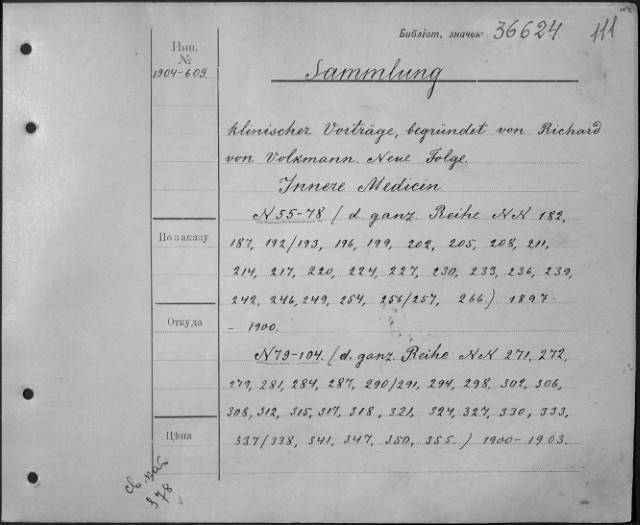 Библіот. значекъ 36624 111
Инв. № 1904-609
Sammlung
klinischer Vorträge, begründet von Richard
von Volkmann. Neue Folge.
Innere Medicin.
N 55-78 (d. ganz. Reihe NN 182,
По заказу
187, 192/193, 196, 199, 202, 205, 208, 211,
214, 217, 220, 224, 227, 230, 233, 236, 239,
242, 246, 249, 254, 256/257, 266.) 1897-
Откуда
- 1900.
N 79-104. (d. ganz. Reihe NN 271, 272,
279, 281, 284, 287, 290/291, 294, 298, 302, 306,
308, 312, 315, 317, 318, 321, 324, 327, 330, 333,
Цѣна
337/338, 341, 347, 350, 355.) 1900-1903.
378